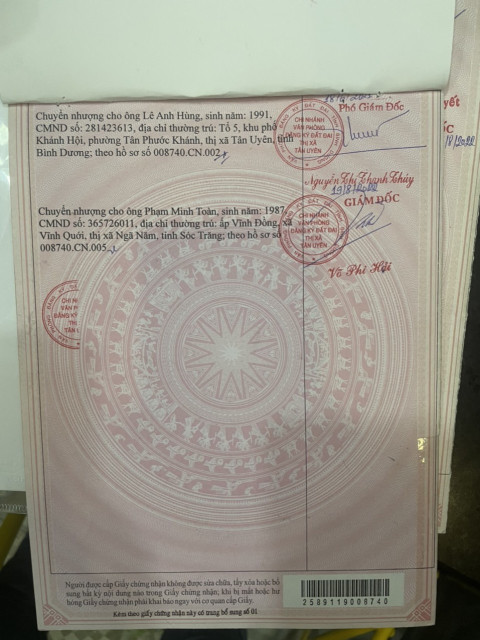 18/
Phó Giám Đốc
Chuyển nhượng cho ông Lê Anh Hùng, sinh năm: 1991,
CMND số: 281423613, địa chỉ thường trú: Tổ 5, khu phố
Khánh Hội, phường Tân Phước Khánh, thị xã Tân Uyên, tỉnh
Bình Dương; theo hồ sơ số 008740.CN.002
CHI NHÁNH
VĂN PHÒNG
ĐĂNG KÝ ĐẤT ĐAI
THỊ XÃ
TÂN UYÊN
Nguyễn Thị Thanh Thúy
19/8/2022
GIÁM ĐỐC
Chuyển nhượng cho ông Phạm Minh Toàn, sinh năm: 1987
CMND số: 365726011, địa chỉ thường trú: ấp Vĩnh Đồng, xã
Vĩnh Quới, thị xã Ngã Năm, tỉnh Sóc Trăng; theo hồ sơ số
008740.CN.005
CHI NHÁNH
VĂN PHÒNG
ĐĂNG KÝ ĐẤT ĐAI
THỊ XÃ
TÂN UYÊN
Võ Phi Hội
CHI N
VĂN P
ĐĂNG KÝ
TH
TÂN
yết
ỐC
/8/2022
Người được cấp Giấy chứng nhận không được sửa chữa, tẩy xóa hoặc bổ
sung bất kỳ nội dung nào trong Giấy chứng nhận; khi bị mất hoặc hư
hỏng Giấy chứng nhận phải khai báo ngay với cơ quan cấp Giấy.
2589119008740
Kèm theo giấy chứng nhận này có trang bổ sung số 01